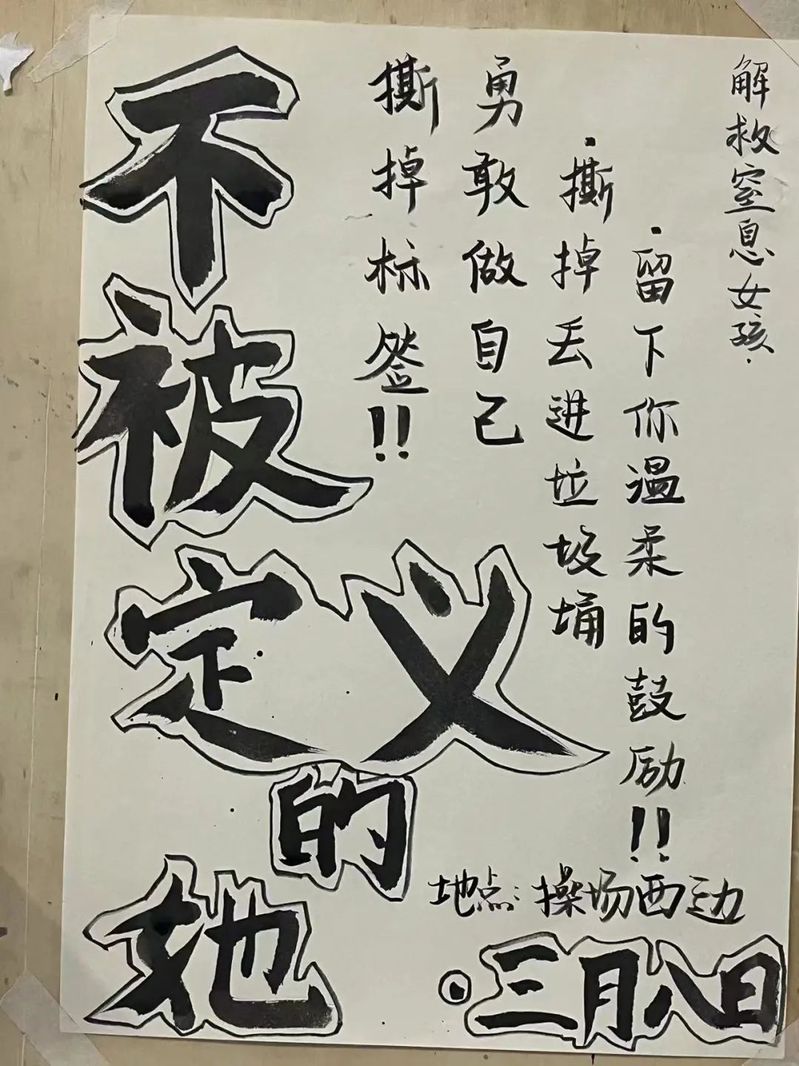 不被定义的她
撕掉标签!!
勇敢做自己
·撕掉丢进垃圾埇
·留下你温柔的鼓励!!
解救窒息女孩.
地点:操场西边
⊙三月八日